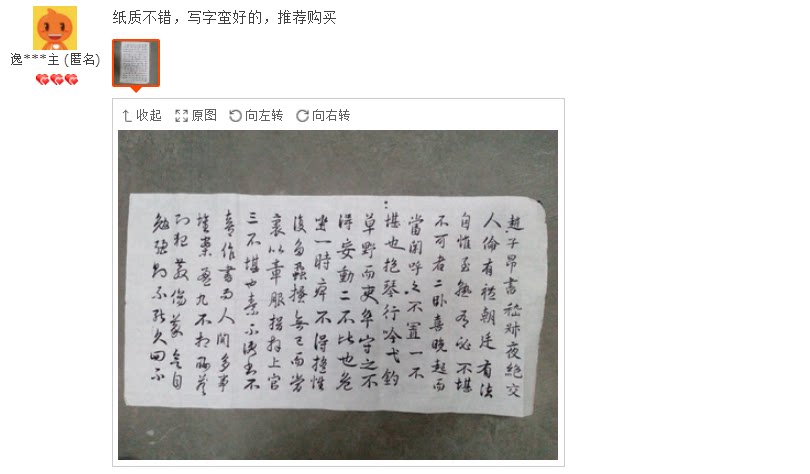 纸质不错，写字蛮好的，推荐购买
逸***主 (匿名)
收起 原图 向左转 向右转
趙子昂書嵇叔夜絕交
人倫有禮朝廷有法
自惟至熟有必不堪
不可者二卧喜晚起而
當関呼之不置一不
堪也抱琴行吟弋釣
草野而吏卒守之不
得妄動二不堪也危
坐一時痺不得搖性
復多蝨搔無已而當
裹以章服揖拜上官
三不堪也素不便書不
喜作書而人間多事
堆案盈几不相酬答
則犯教傷義欲自
勉強則不能久四不